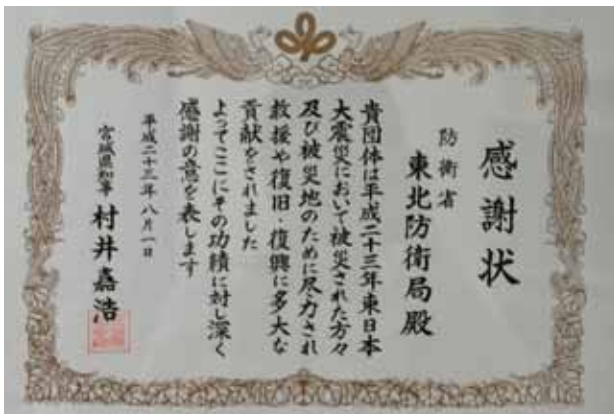 感謝状
防衛省
東北防衛局殿
貴団体は平成二十三年東日本
大震災において被災された方々
及び被災地のために尽力され
救援や復旧・復興に多大な
貢献をされました
よってここにその功績に対し深く
感謝の意を表します
平成二十三年八月一日
宮城県知事 村井嘉浩